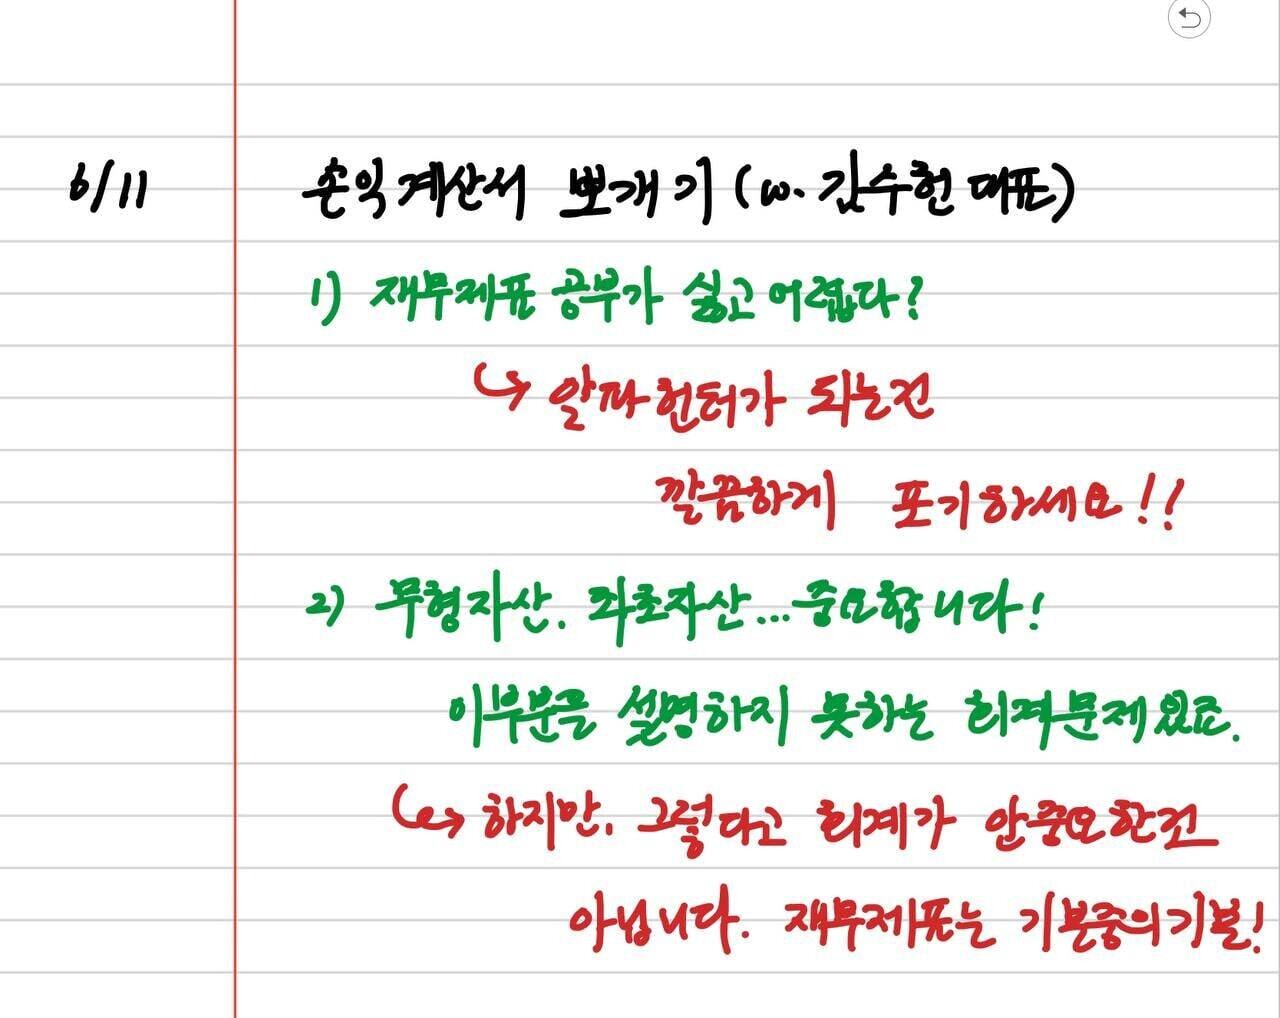 6/11 손익계산서 뽀개기(w. 김수헌 대표)
1) 재무제표 공부가 싫고 어렵다?
↳ 알파헌터가 되는건
깔끔하게 포기하세요!!
2) 무형자산, 좌초자산...중요합니다!
이부분은 설명하지 못하는 회계문제 있죠.
↳ 하지만, 그렇다고 회계가 안중요한건
아닙니다. 재무제표는 기본중의기본!